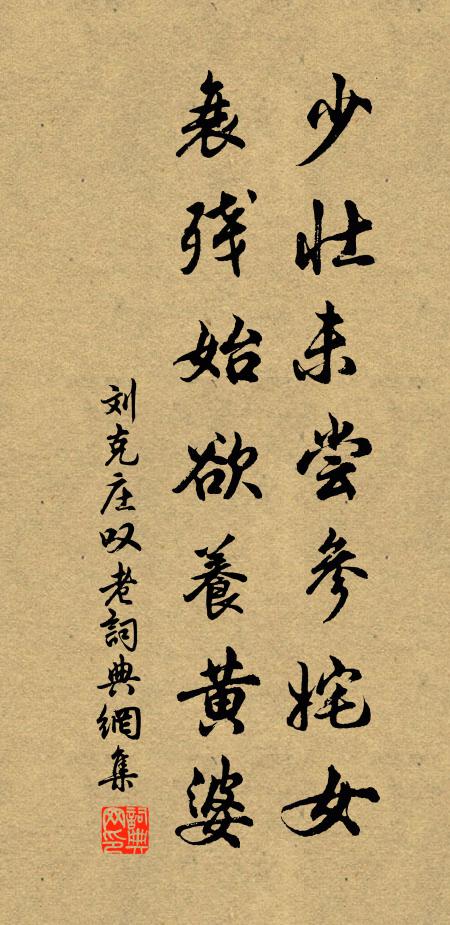 少壮未尝参姹女
衰残始欲養黄婆
刘克庄叹老詞典網集
詞典网印